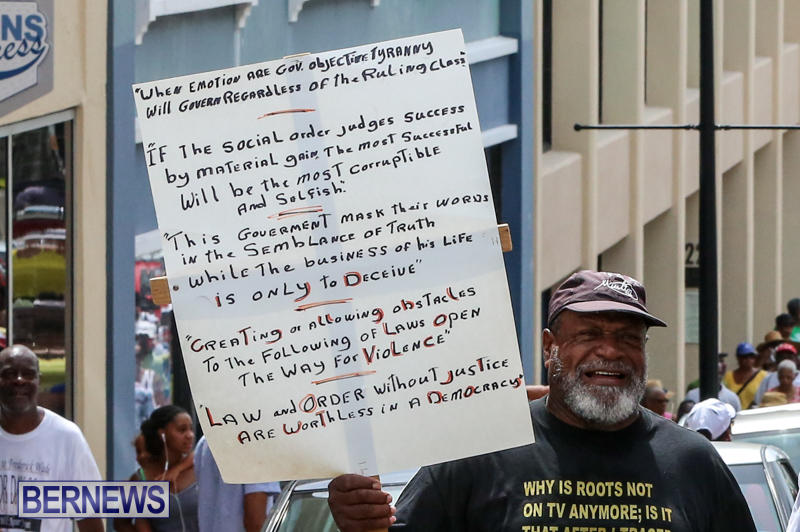 NS
ess
"WHEN EMOTION ARE GOV. OBJECTIVE TYRANNY
WILL GOVERN REGARDLESS OF THE RULING CLASS"
"IF THE SOCIAL ORDER JUDGES SUCCESS
by MATERIAL GAIN. THE MOST SUCCESSFUL
WILL be THE MOST CORRUPTIBLE
AND SELFISH".
"THIS GOVERMENT MASK THEIR WORDS
IN THE SEMBLANCE OF TRUTH
WHILE THE BUSINESS OF HIS LIFE
IS ONLY TO DECEIVE"
"CREATING OR ALLOWING OBSTACLES
TO THE FOLLOWING OF LAWS OPEN
THE WAY FOR VIOLENCE"
"LAW AND ORDER WITHOUT JUSTICE
ARE WORTHLESS IN A DEMOCRACY"
WHY IS ROOTS NOT
ON TV ANYMORE; IS IT
THAT AFTER I TRACED
BERNEWS